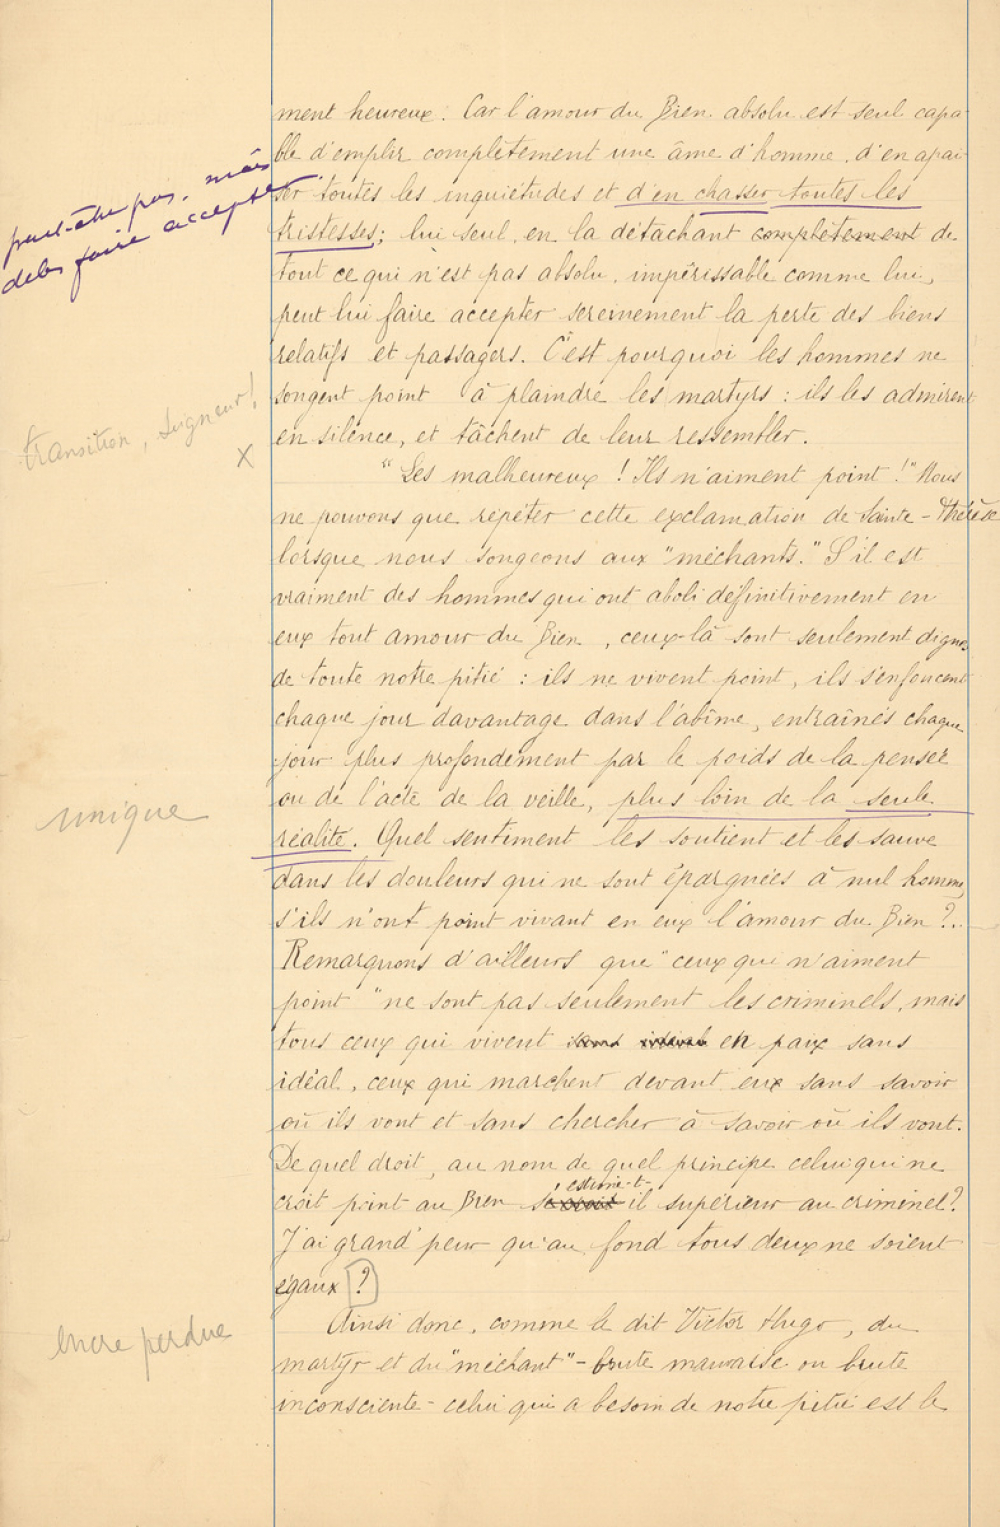 ment heureux. Car l'amour du Bien absolu est seul capa-
ble d'emplir complètement une âme d'homme, d'en apai-
ser toutes les inquiétudes et d'en chasser toutes les
tristesses; lui seul, en la détachant complètement de
tout ce qui n'est pas absolu, impérissable comme lui,
peut lui faire accepter sereinement la perte des biens
relatifs et passagers. C'est pourquoi les hommes ne
songent point à plaindre les martyrs : ils les admirent
en silence, et tâchent de leur ressembler.
peut-être pas, mais
de les faire accepter.
transition, Seigneur!
X
"Les malheureux ! Ils n'aiment point !" Nous
ne pouvons que répéter cette exclamation de Sainte-Thérèse
lorsque nous songeons aux "méchants." S'il est
vraiment des hommes qui ont aboli définitivement en
eux tout amour du Bien, ceux-là sont seulement dignes
de toute notre pitié : ils ne vivent point, ils s'enfoncent
chaque jour davantage dans l'abîme, entraînés chaque
jour plus profondément par le poids de la pensée
ou de l'acte de la veille, plus loin de la seule
réalité. Quel sentiment les soutient et les sauve
unique
dans les douleurs qui ne sont épargnées à nul homme,
s'ils n'ont point vivant en eux l'amour du Bien ?..
Remarquons d'ailleurs que "ceux qui n'aiment
point" ne sont pas seulement les criminels, mais
tous ceux qui vivent sans en paix sans
idéal, ceux qui marchent devant eux sans savoir
où ils vont et sans chercher à savoir où ils vont.
De quel droit, au nom de quel principe celui qui ne
croit point au Bien s'estime-t-il supérieur au criminel ?
J'ai grand'peur qu'au fond tous deux ne soient
égaux ?
Ainsi donc, comme le dit Victor Hugo, du
encre perdue
martyr et du "méchant" - brute mauvaise ou brute
inconsciente - celui qui a besoin de notre pitié est le